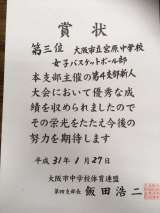 賞状
第三位 大阪市立宮原中学校
女子バスケットボール部
本支部主催の第4支部新人
大会において優秀な成
績を収められましたので
その栄光をたたえ今後の
努力を期待します
平成31年1月27日
大阪市中学校体育連盟
第四支部長 飯田浩二